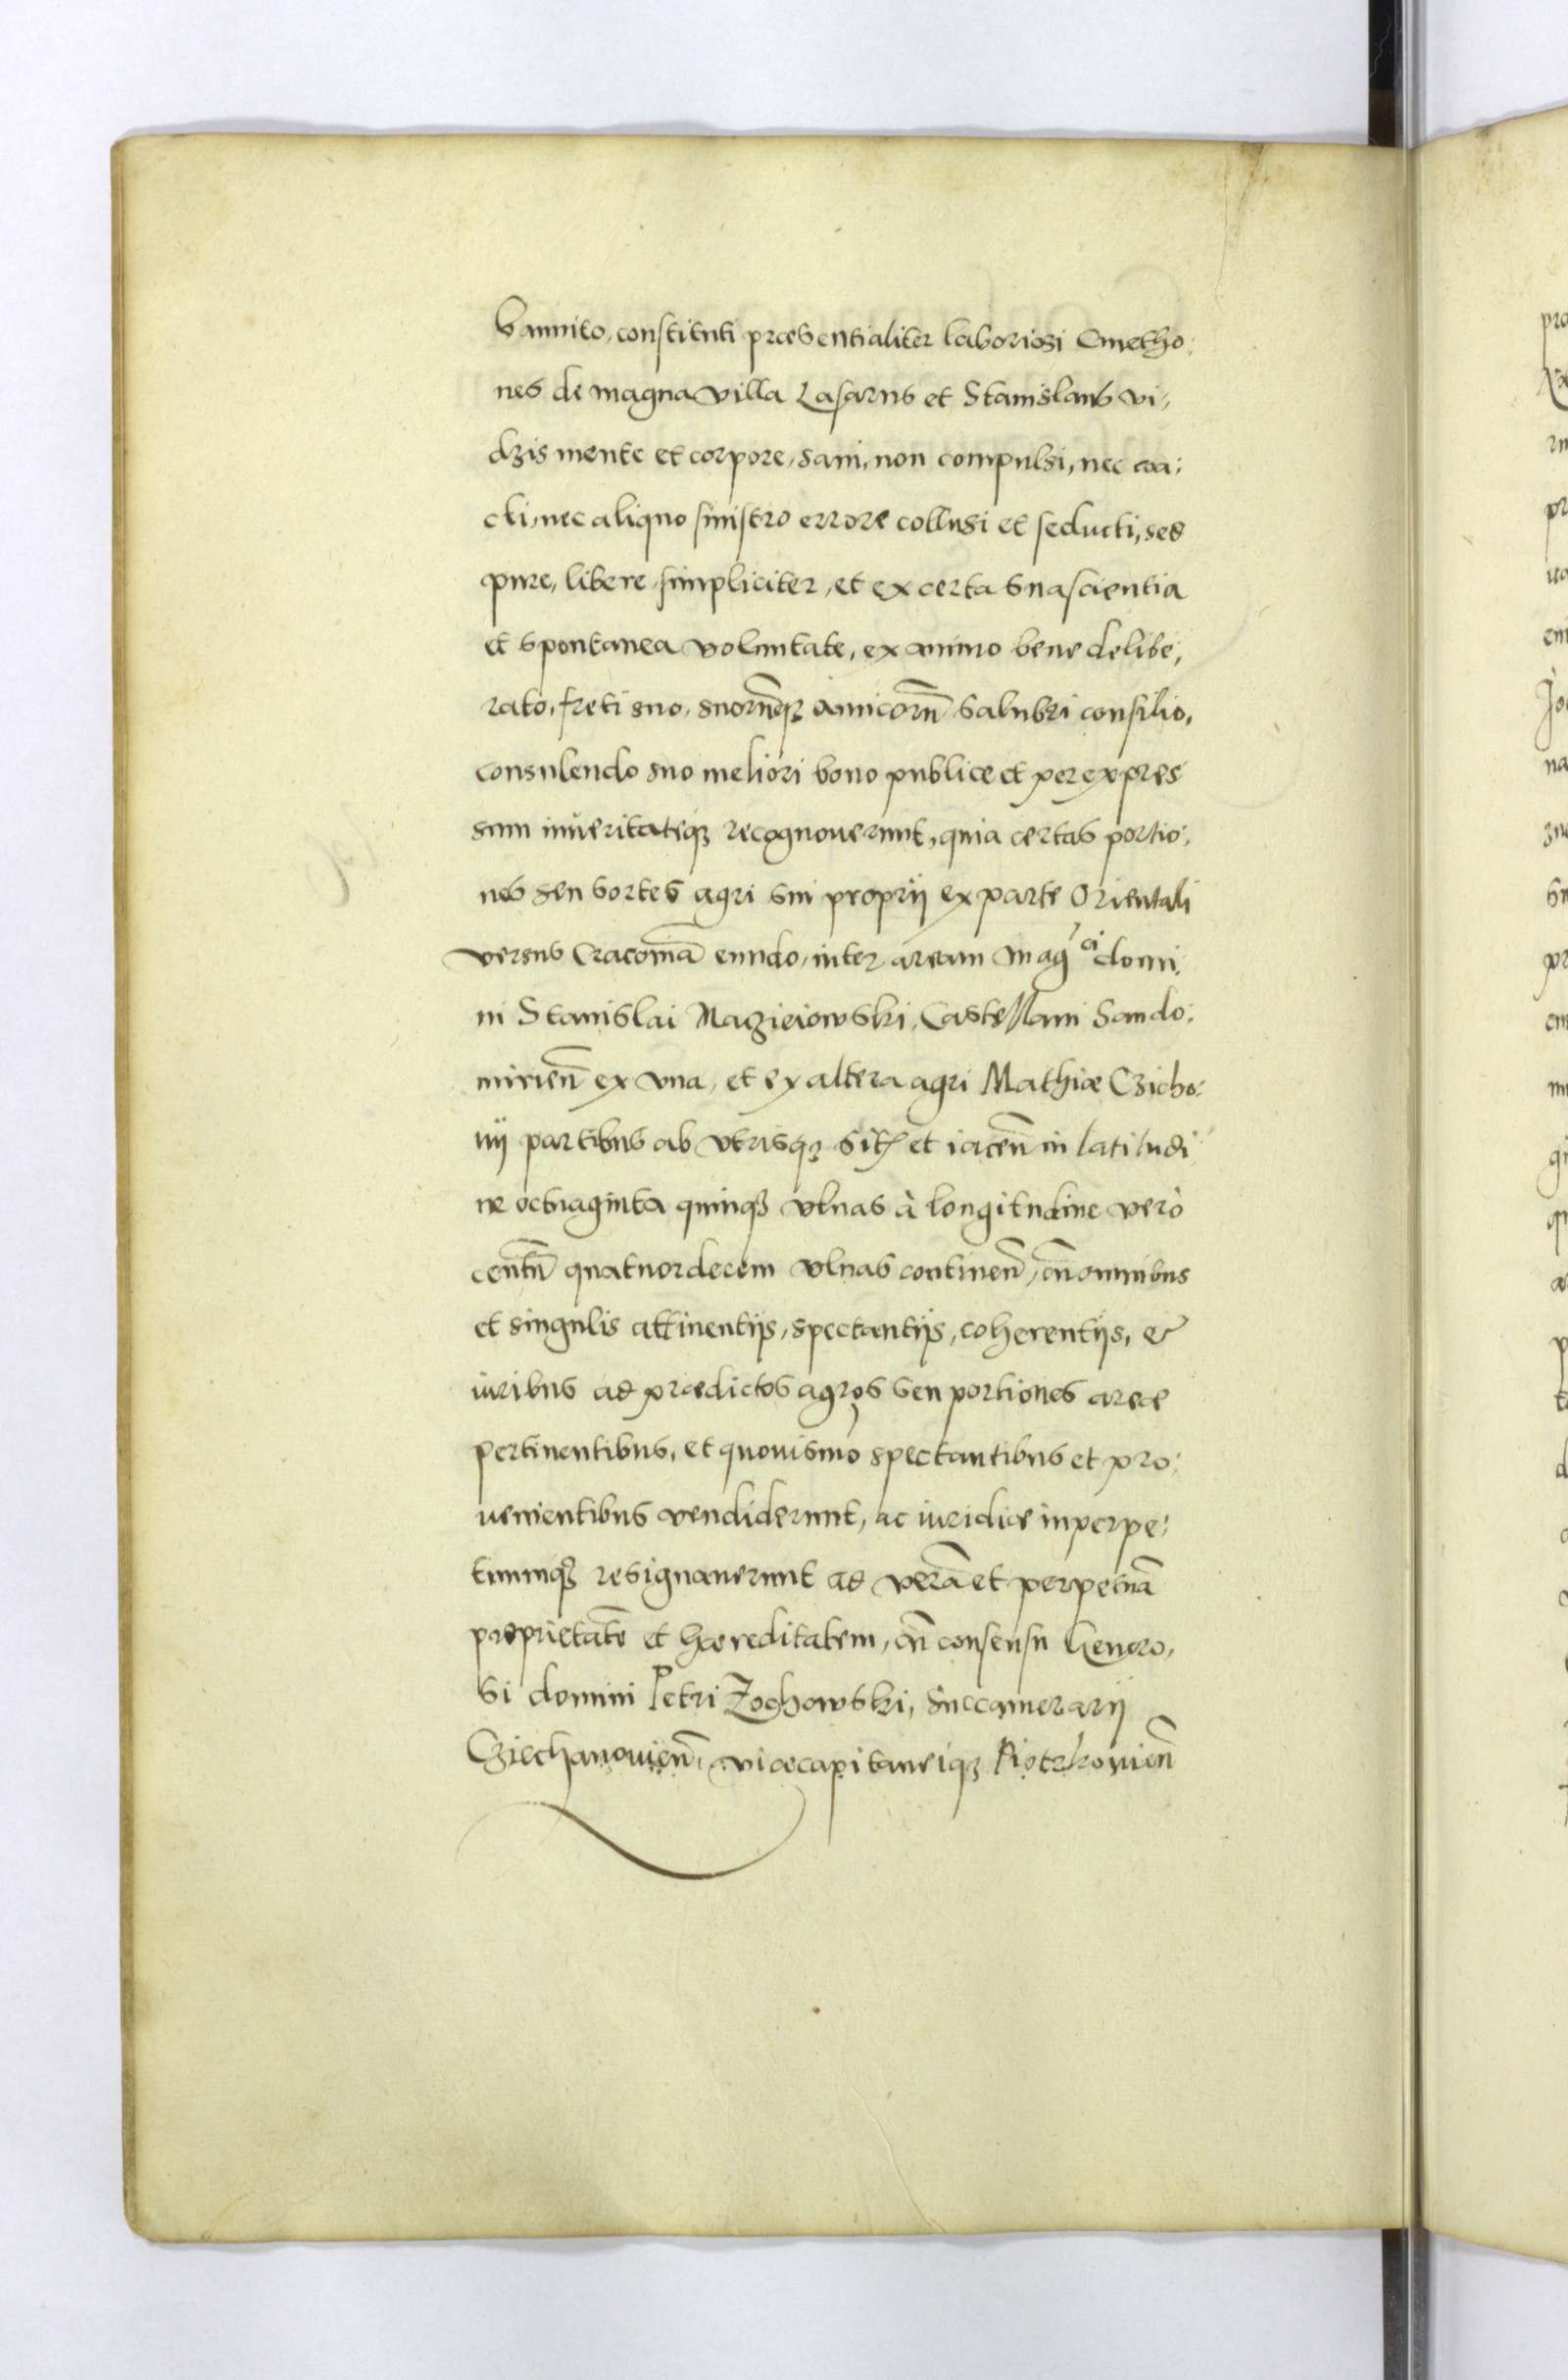 bannito, constituti praesentialiter laboriosi Cmetho:
nes de magna villa Lasarus et Stanislaus vi,
dzis mente et corpore, sani, non compulsi, nec coa:
cti, nec aliquo sinistro errore collusi et seducti, sed
pure, libere, simpliciter, et ex certa sua scientia
et spontanea voluntate, ex animo bene delibe,
rato, freti suo, suorūq̨ amicorū salubri consilio,
consulendo suo meliori bono publice et per expres
sum inueritateq̨ recognouerunt, quia certas portio:
nes seu sortes agri sui proprij ex parte Orientali
versus Cracouiā eundo, inter aream Mag^ci domi
ni Stanislai Maczieiowski, Castellani Sando:
mirien̄ ex vna, et ex altera agri Mathiæ Czicho:
nij partibus ab vtrisq̨ sit̄ et iacen̄ in latitudi
ne octuaginta quinq̨ vlnas à longitudine verò
centū quatuordecem vlnas continen̄, cū omnibus
et singulis attinentijs, spectantijs, coherentijs, &
iuribus ad praedictos agros seu portiones areæ
pertinentibus, et quouismo spectantibus et pro:
uenientibus vendiderunt, ac iuridice inperpe:
tuumq̨ resignauerunt ad verā et perpetuā
proprietatē et haereditatem, cū consensu Genero,
si domini Petri Zochowski, Succamerarij
Cziechanouien̄, vicecapitaneiq̨ Piotrkouien̄